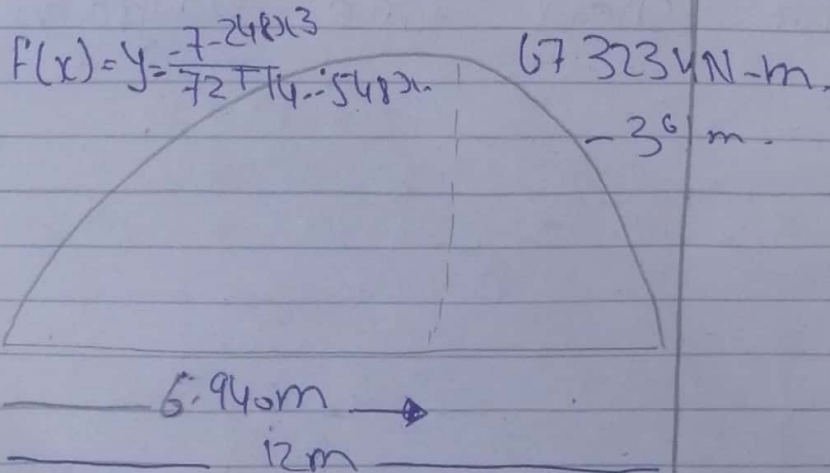 f(x) = y = -7-248x3
72 + 14..548x.
67 323 kN-m.
- 36 m.
6.940m
12m